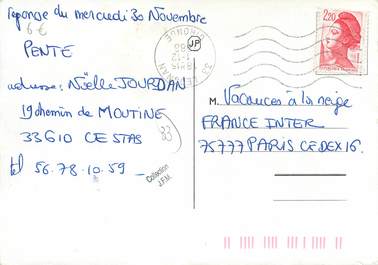 réponse du mercredi 30 Novembre
6€
PENTE
adresse : Noëlle JOURDAN
19 chemin de MOUTINE
33610 CESTAS
tel 56.78.10.59
33
Collection
J.F.M
JP
33 CE
GIRONDE
2,20
M. Vacances à la neige
FRANCE INTER
75777 PARIS CEDEX 16.